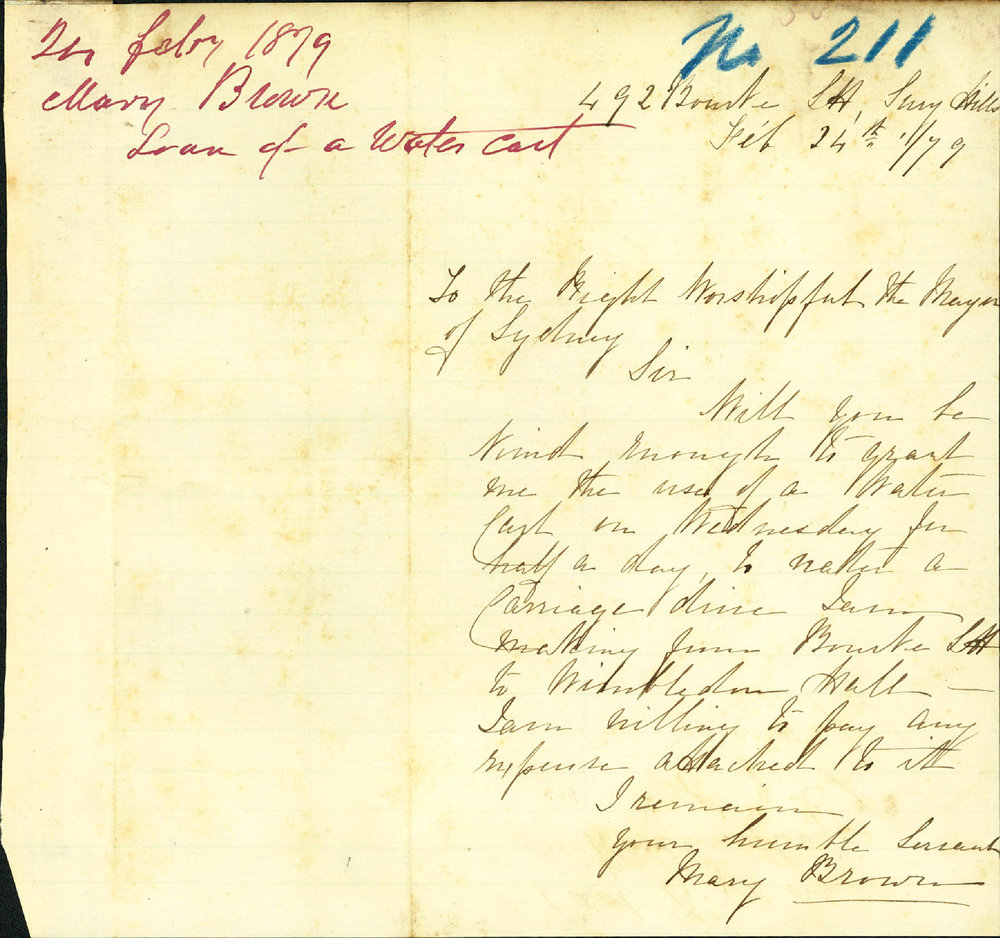 24 febry 1879
Mary Brown
Loan of a Water Cart
No 211
492 Bourke St, Surry Hills
Feb 24th /79
To the Right Worshipful the Mayor
of Sydney
Sir
Will you be
kind enough to grant
me the use of a Water
Cart on Wednesday for
half a day, to water a
Carriage drive I am
making from Bourke St
to Wimbledon Hall —
I am willing to pay any
expense attached to it
I remain
your humble Servant
Mary Brown